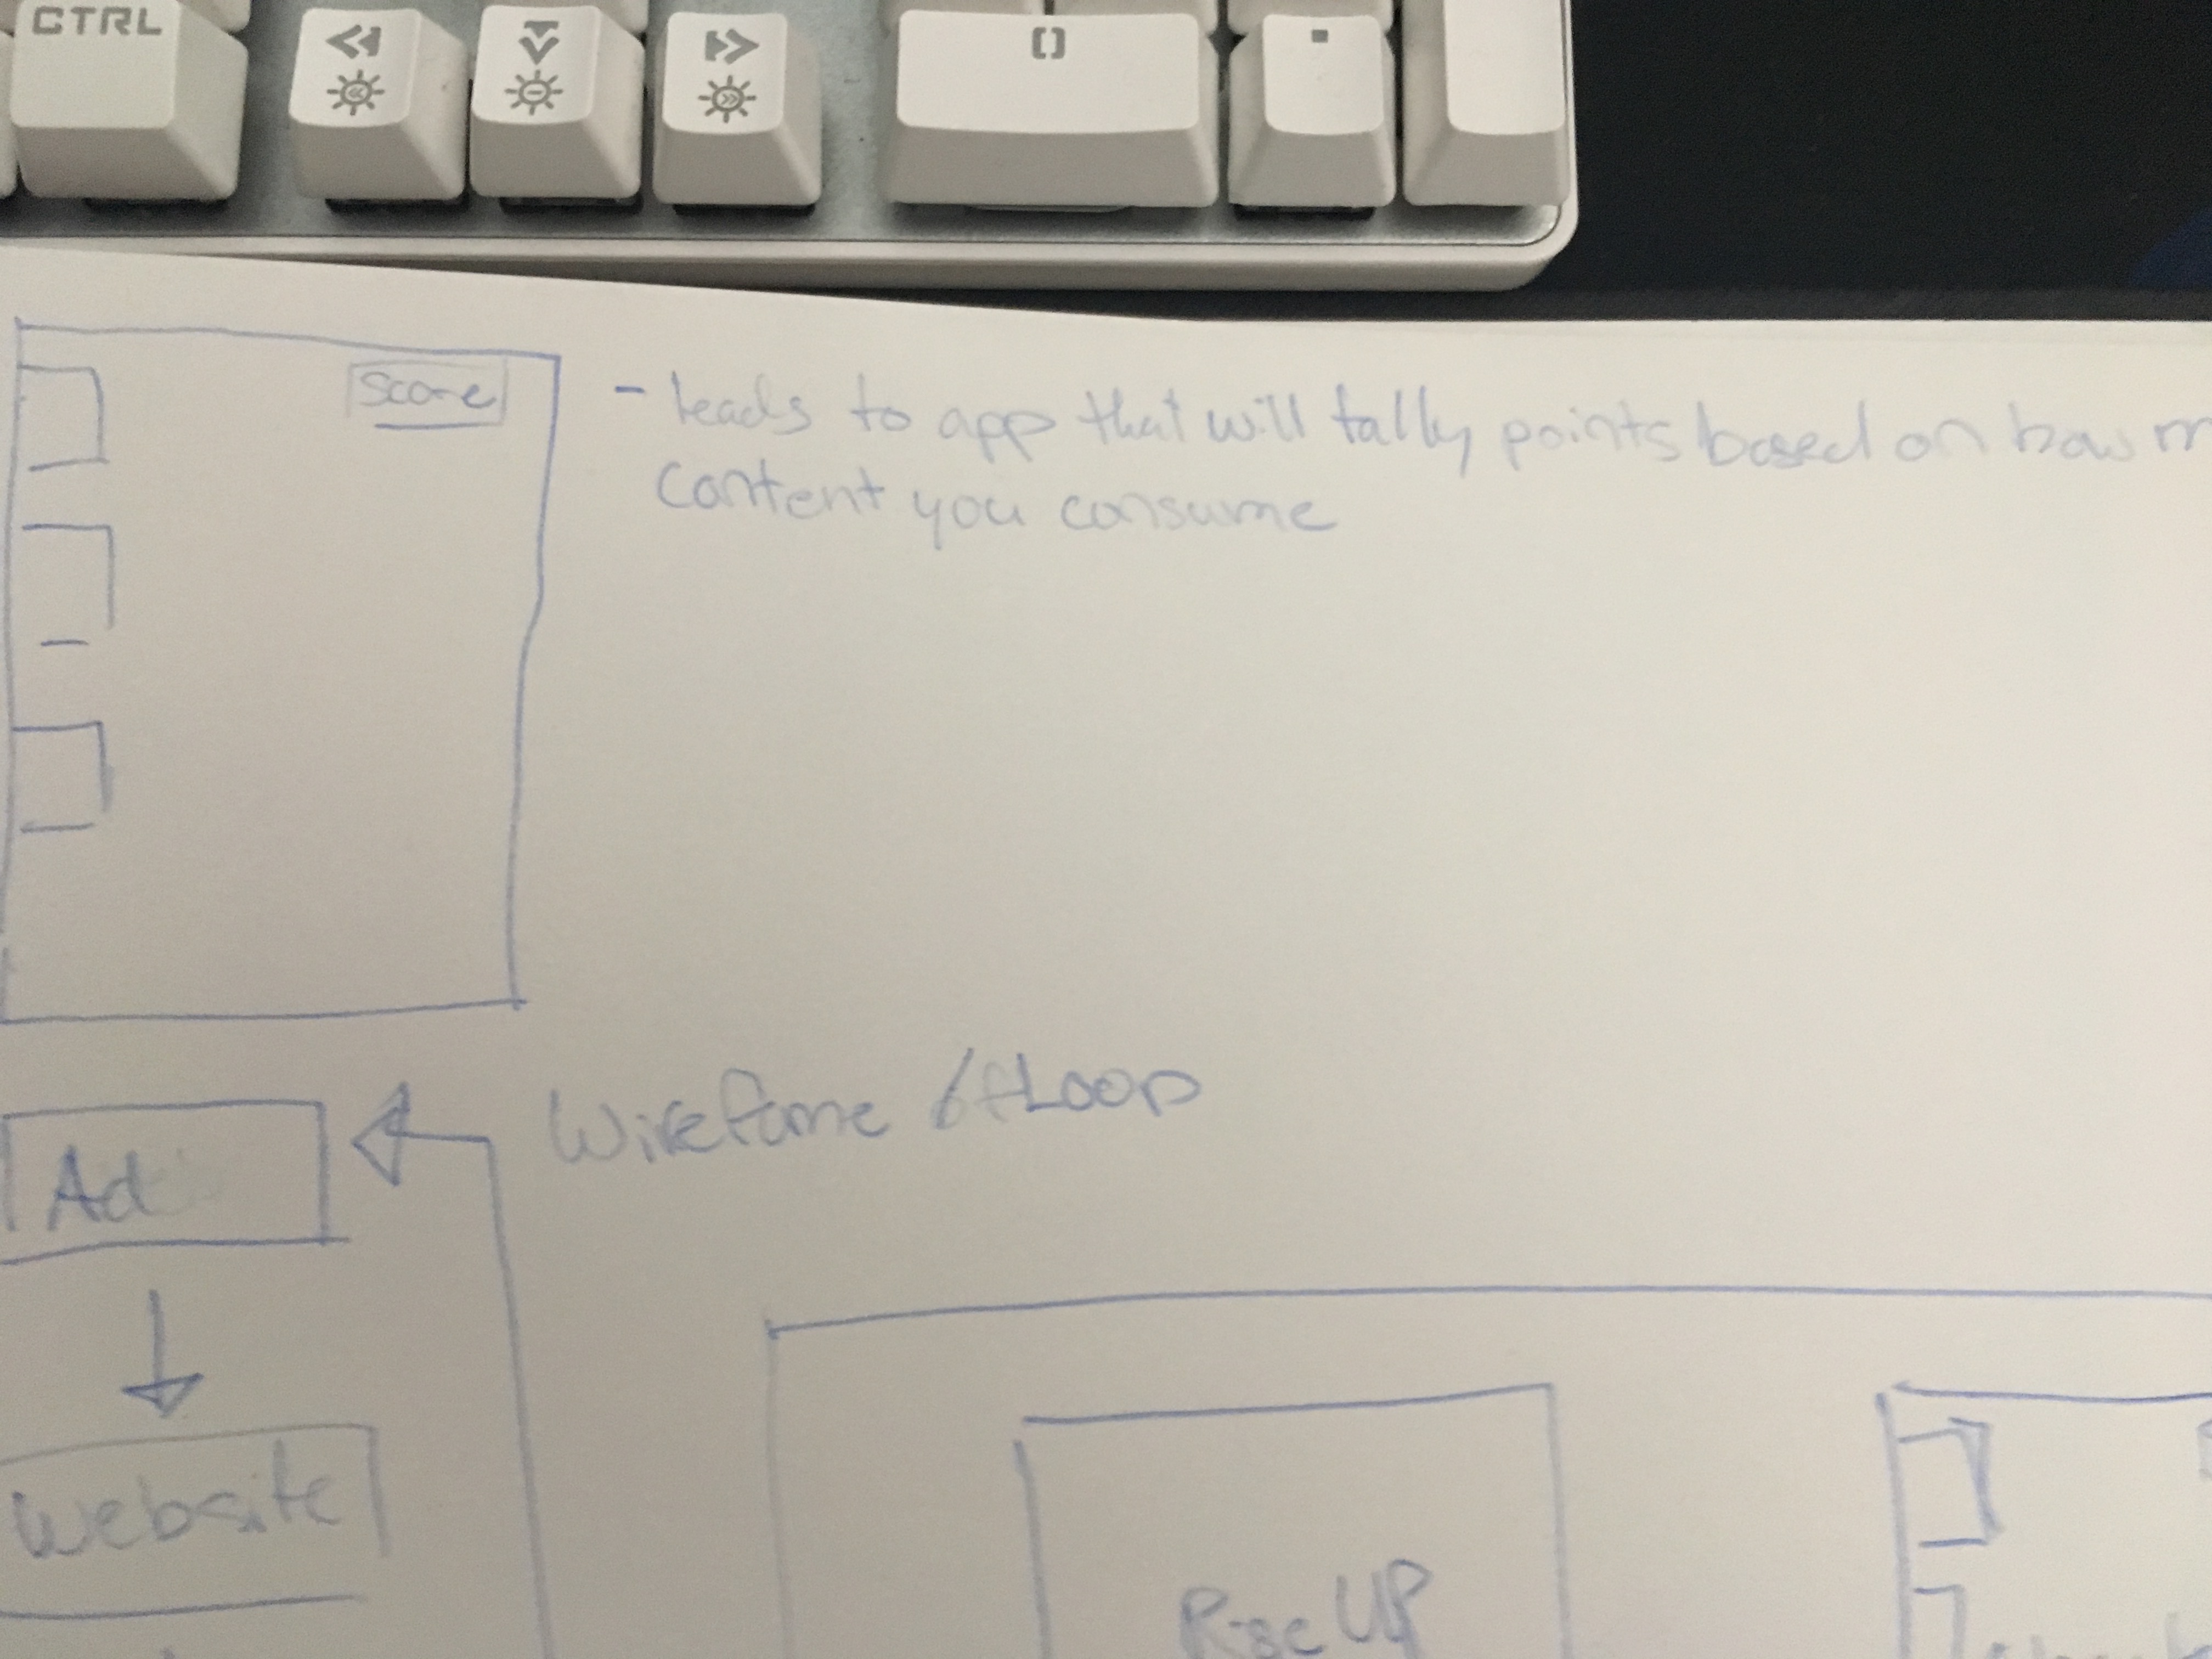 CTRL
Score
- leads to app that will tally points based on how m
content you consume
Wirefame / Loop
Ad
Website
Rise UP